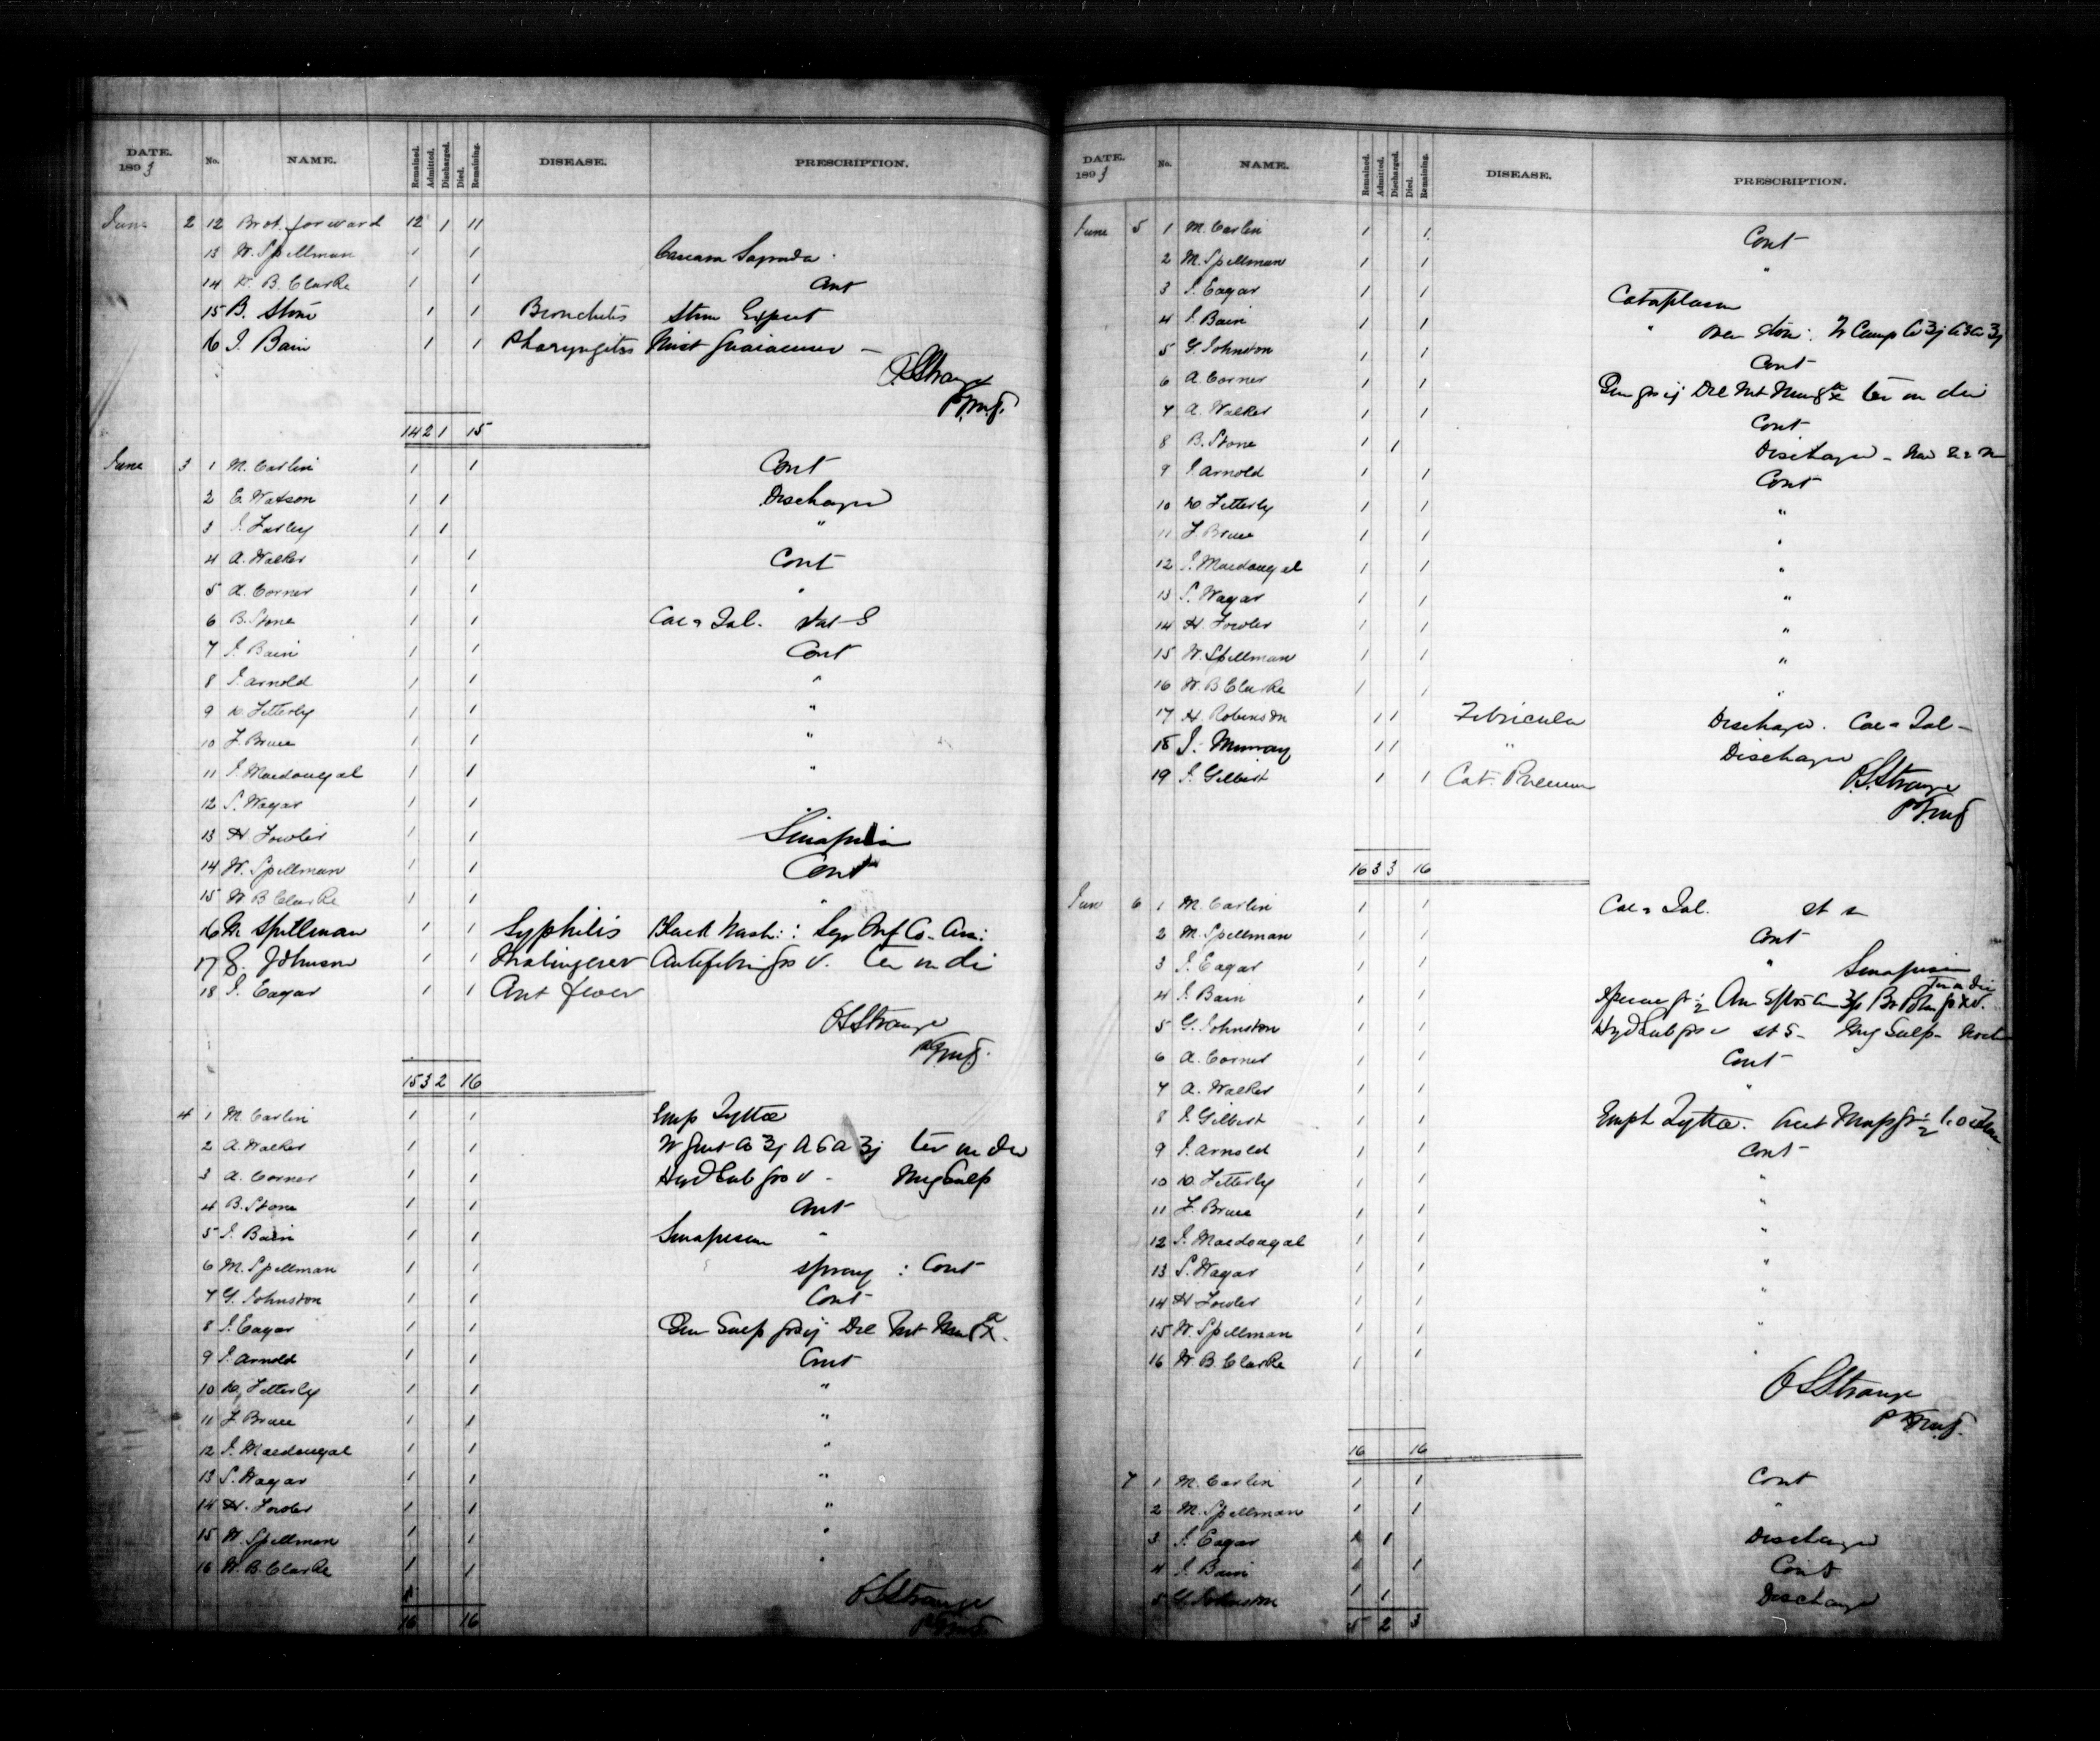 DATE. 1893 No. NAME. Remained. Admitted. Discharged. Died. Remaining. DISEASE. PRESCRIPTION.
June 2 12 Brot. forward 12 1 11
13 W. Spellman 1 1 Cascara Sagrada
14 W. B. Clarke 1 1 Cont
15 B. Stone 1 1 Bronchitis Expect
16 J. Bain 1 1 Pharyngitis Mist Guaiacum
O S Strange
14 2 1 15
June 3 1 M. Carlin 1 1 Cont
2 E. Watson 1 1 Discharged
3 J. Farley 1 1 "
4 A. Walker 1 1 Cont
5 A. Corner 1 1 "
6 B. Stone 1 1 Cal & Jal. Stat S
7 J. Bain 1 1 Cont
8 J. Arnold 1 1 "
9 W. Fetterly 1 1 "
10 F. Bruce 1 1 "
11 J. Macdougal 1 1 "
12 S. Wagar 1 1
13 H. Fowler 1 1 Sinapism
14 W. Spellman 1 1 Cont
15 W B Clarke 1 1 "
16 M Spellman 1 1 Syphilis Black Wash :
17 G. Johnson 1 1 Antifebrin grs v. ter in di
18 J. Eagar 1 1 Ant fever
O S Strange
15 3 2 16
4 1 M. Carlin 1 1 Emp Lyttæ
2 A. Walker 1 1 ter in die
3 A. Corner 1 1 Hyd Sub grs v - Mag Sulp
4 B. Stone 1 1 Cont
5 J. Bain 1 1 Sinapism "
6 M. Spellman 1 1 spray : Cont
7 G. Johnston 1 1 Cont
8 J. Eagar 1 1 Quin Sulp grs ij
9 J. Arnold 1 1 Cont
10 W. Fetterly 1 1 "
11 F. Bruce 1 1 "
12 J. Macdougal 1 1 "
13 S. Wagar 1 1 "
14 H. Fowler 1 1 "
15 W. Spellman 1 1 "
16 W. B. Clarke 1 1 "
O S Strange
16 16
DATE. 1893 No. NAME. Remained. Admitted. Discharged. Died. Remaining. DISEASE. PRESCRIPTION.
June 5 1 M. Carlin 1 1 Cont
2 M. Spellman 1 1 "
3 J. Eagar 1 1 Cataplasm
4 J. Bain 1 1 "
5 G. Johnston 1 1 Cont
6 A. Corner 1 1 ter in die
7 A. Walker 1 1 Cont
8 B. Stone 1 1 Discharged
9 J. Arnold 1 1 Cont
10 W. Fetterly 1 1 "
11 F. Bruce 1 1 "
12 J. Macdougal 1 1 "
13 S. Wagar 1 1 "
14 H. Fowler 1 1 "
15 W. Spellman 1 1 "
16 W. B Clarke 1 1 "
17 H. Robinson 1 1 Febricula Discharged. Cal & Jal -
18 J. Murray 1 1 " Discharged
19 J. Gilbert 1 1 Cat. Pneum
O. S. Strange
16 3 3 16
June 6 1 M. Carlin 1 1 Cal & Jal. st s
2 M. Spellman 1 1 Cont
3 J. Eagar 1 1 " Sinapism
4 J. Bain 1 1 Ter in Die
5 G. Johnston 1 1 Hyd Sub grs v st S - Mag Sulp -
6 A. Corner 1 1 Cont
7 A. Walker 1 1 "
8 J. Gilbert 1 1 Emp Lyttæ.
9 J. Arnold 1 1 Cont
10 W. Fetterly 1 1 "
11 F. Bruce 1 1 "
12 J. Macdougal 1 1 "
13 S. Wagar 1 1 "
14 H Fowler 1 1 "
15 W. Spellman 1 1 "
16 W. B. Clarke 1 1 "
O S Strange
16 16
7 1 M. Carlin 1 1 Cont
2 M. Spellman 1 1 "
3 J. Eagar 1 1 Discharged
4 J. Bain 1 1 Cont
5 G. Johnston 1 1 Discharged
5 2 3